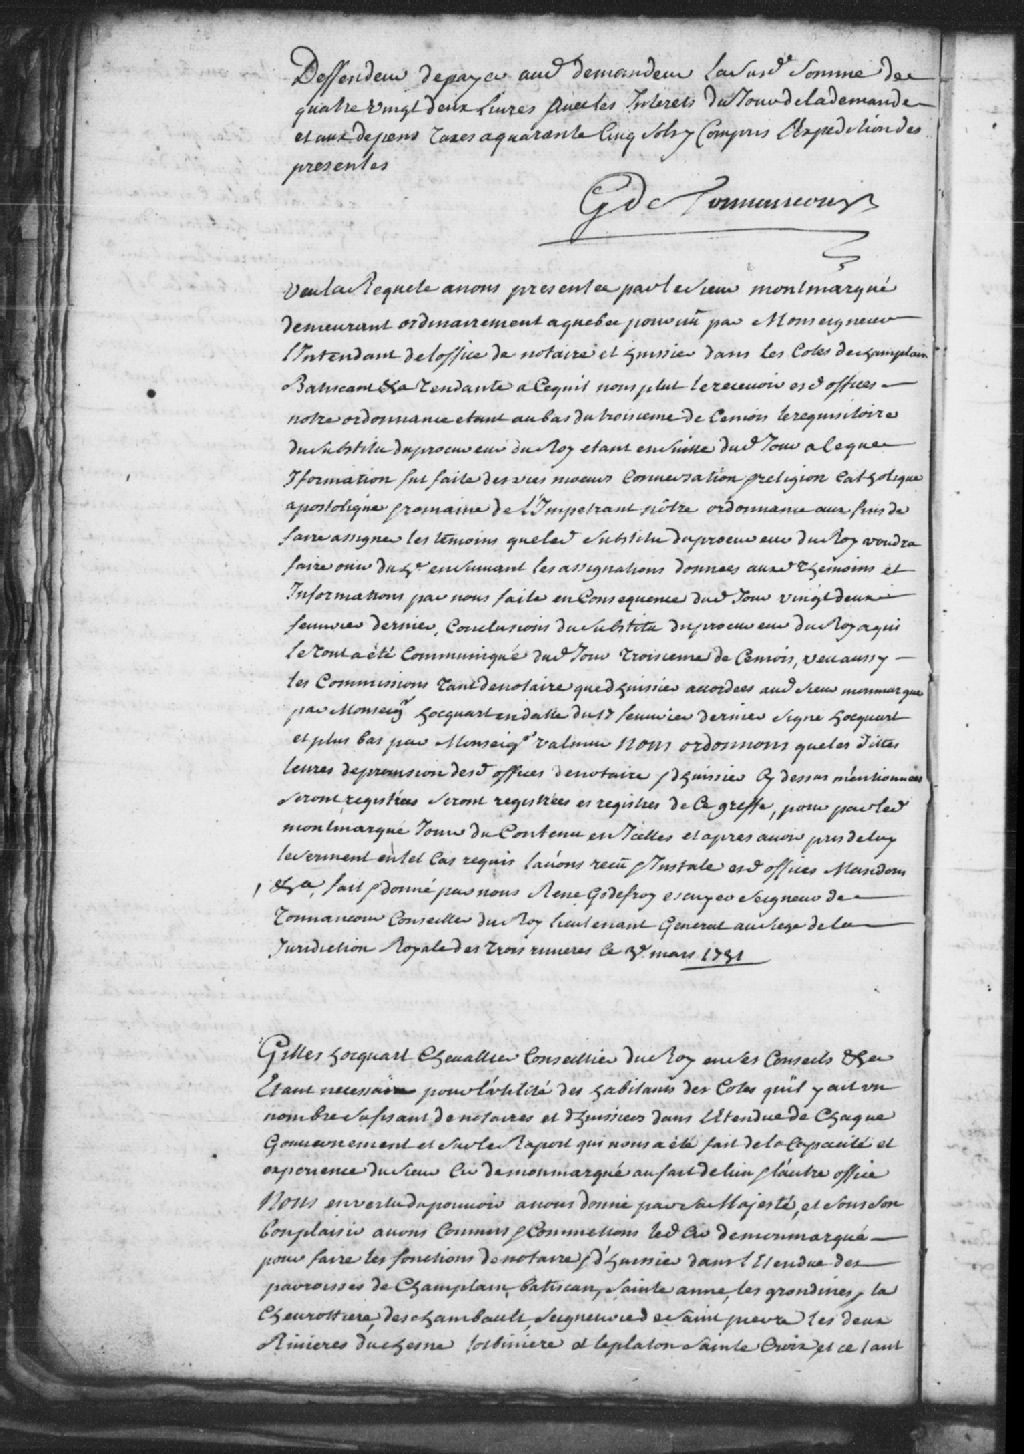 Deffendeur de payer aud demandeur la susd somme de
quatre vingt deux Livres avec les Interets du Jour de la demande
et aux depens taxes a quarante Cinq Sols y Compris l'Expedition des
presentes
G de Tonnancour
Veu la Requete a nous presentee par le Sieur montmarqué
demeurant ordinairement a quebec pourvû par Monseigneur
l'Intendant de l'office de notaire et huissier dans les Cotes de champlain
Batiscant &a tendante a Ce quil nous plut le recevoir esd offices
notre ordonnance etant au bas du troisieme de Cemois le requisitoire
du Substitu du procureur du Roy etant en suitte dud Jour a ce que
Iformation fut faite des vies moeurs Conversation & religion Catholique
apostolique & romaine de l'Impetrant nôtre ordonnance aux fins de
faire assigner les témoins que led Substitu du procureur du Roy voudra
faire ouir du en suivant les assignations données auxd themoins et
Informations par nous faite en Consequence dud Jour vingt deux
feuvrier dernier, Conclusions du Substitu du procureur du Roy a qui
le tout a été Communiqué dud Jour troisieme de Cemois, veu aussy
les Commissions tant de notaire que d'huissier accordées aud sieur monmarque
par Monseigr hocquart en datte du feuvrier dernier Signe hocquart
et plus bas par Monseigr valmur Nous ordonnons que les dittes
lettres de provision desd offices de notaire & d'huissier Cy dessus méntionnées
seront registrées seront registrées es registres de Ce greffe, pour par led
montmarqué Jouir du Contenu en Icelles et apres avoir pris de luy
le serment en tel Cas requis l'avons recû & Instale esd offices Mandons
&a, fait & donné par nous René Godefroy escuyer Seigneur de
Tonnancour Conseiller du Roy lieutenant General au Siege de la
Juridiction Royale des trois rivieres le 3e mars 1731
Gilles hocquart Chevallier Conseillier du Roy en ses Conseils &a
Etant necessaire pour l'utilité des habitants des Cotes qu'il y ait un
nombre sufisant de notaires et d'huissiers dans l'Etendue de Chaque
Gouvernement et sur le Raport qui nous a été fait de la Capacité et
experience du Sieur de monmarqué au fait de l'un & l'autre office
Nous en vertu du pouvoir a nous donné par sa Majesté, et sous son
bon plaisir avons Commis & Commettons led de monmarqué
pour faire les fonctions de notaire & d'huissier dans l'Etendue des
parroisses de Champlain, batiscan, Sainte anne, les grondines, la
Cheurottiere, deschambault, Seigneurie de Saint pierre les deux
Rivieres du chesne lotbiniere et le platon Sainte Croix, et ce tant